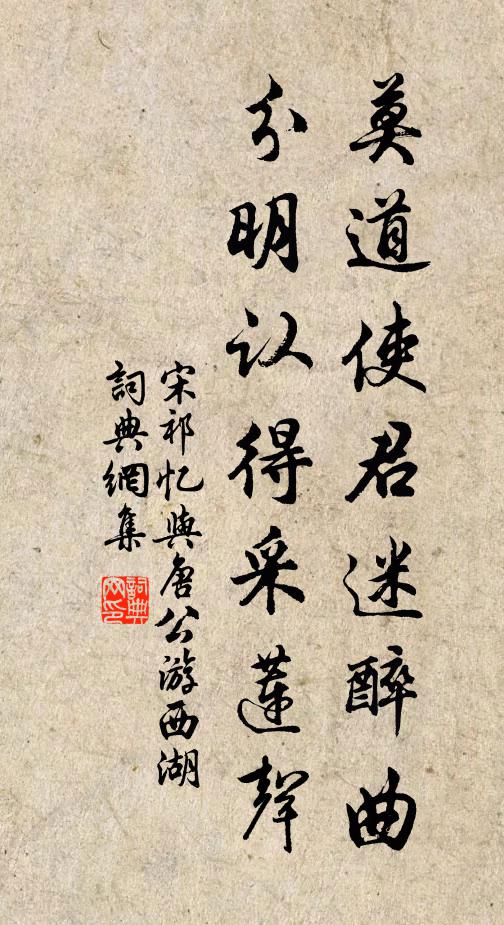 莫道使君迷醉曲
分明认得采蓮聲
宋祁忆與唐公游西湖
詞典網集
詞典网印